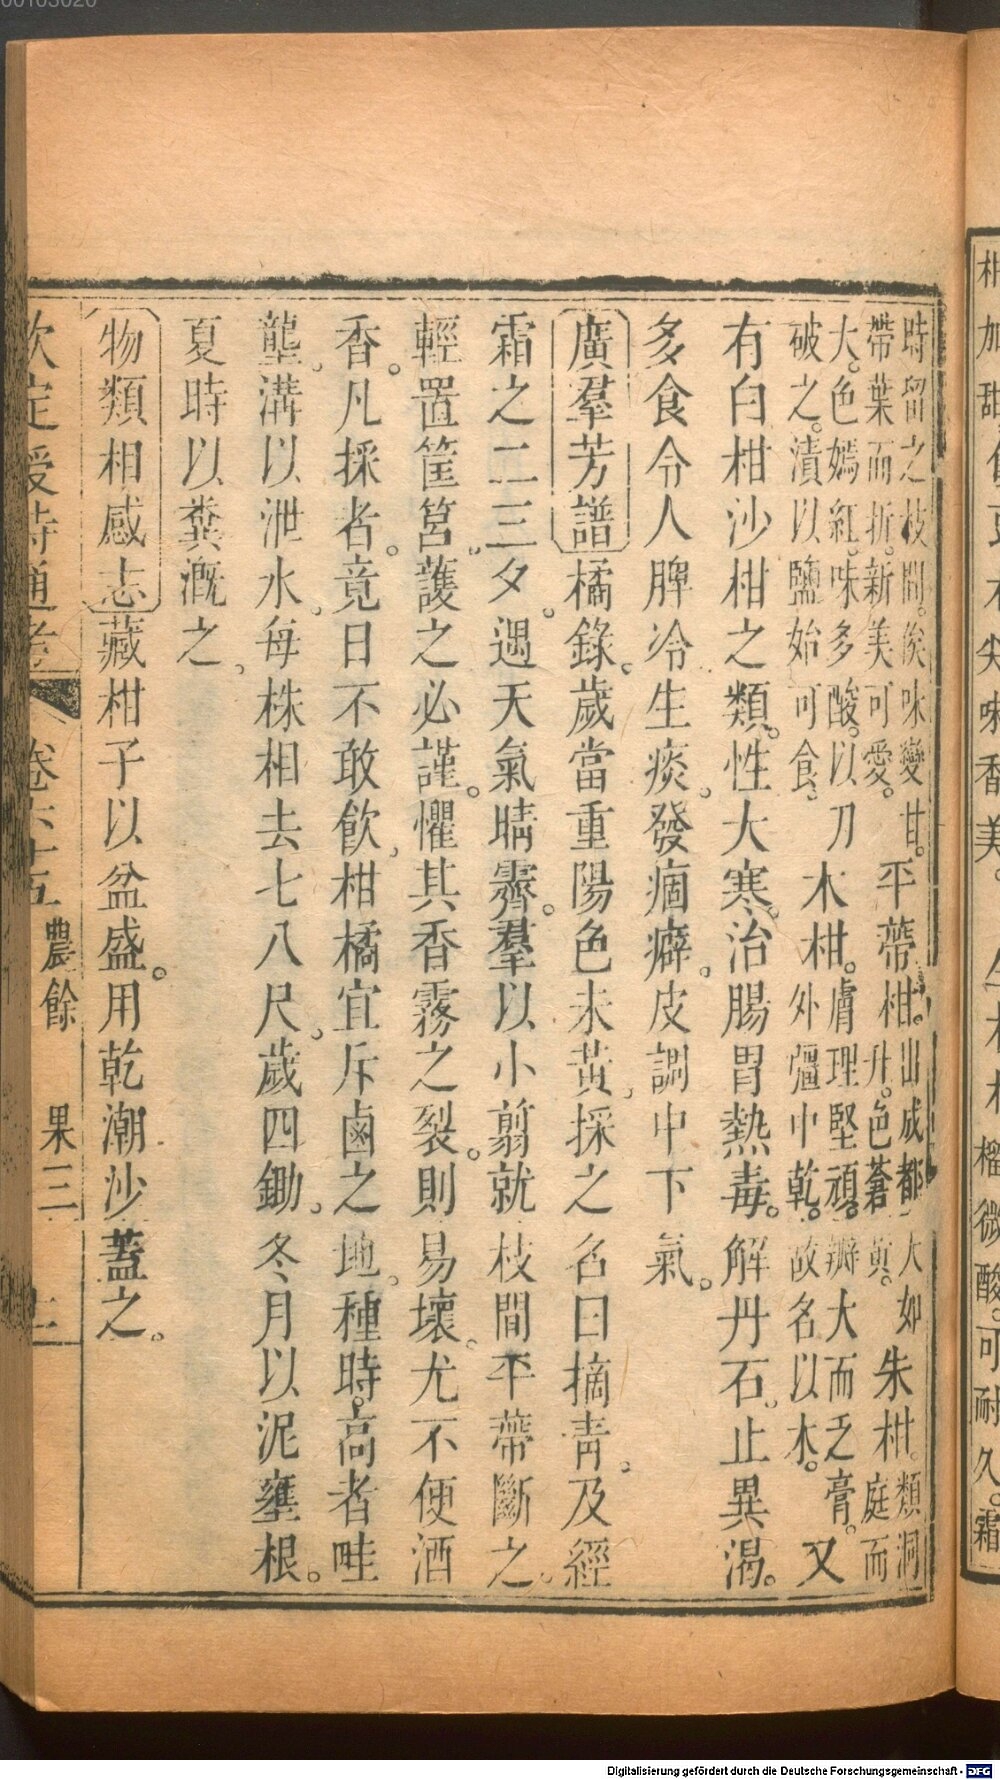 味香美。
微酸。可耐久。霜
時留之枝間。俟味變甘。
帶葉而折。新美可愛。
平蒂柑。
出成都大如
升。色蒼黃。
朱柑。
類洞
庭而
大。色嫣紅。味多酸。以刀
破之。漬以鹽始可食。
木柑。
膚理堅頑。瓣大而乏膏。
外彊中乾。故名以木。
又
有白柑沙柑之類。性大寒。治腸胃熱毒。解丹石。止異渴。
多食令人脾冷生痰。發痼癖。皮調中下氣。
廣羣芳譜橘錄。歲當重陽色未黃。採之名曰摘青。及經
霜之二三夕。遇天氣晴霽。羣以小翦就枝間平蒂斷之。
輕置筐筥。護之必謹。懼其香霧之裂。則易壞。尤不便酒
香。凡採者。竟日不敢飲。柑橘宜斥鹵之地。種時。高者畦
壟。溝以泄水。每株相去七八尺。歲四鋤。冬月以泥壅根。
夏時以糞溉之。
物類相感志藏柑子以盆盛。用乾潮沙蓋之。
欽定授時通考 卷六十五 農餘 果三 三
Digitalisierung gefördert durch die Deutsche Forschungsgemeinschaft - DFG